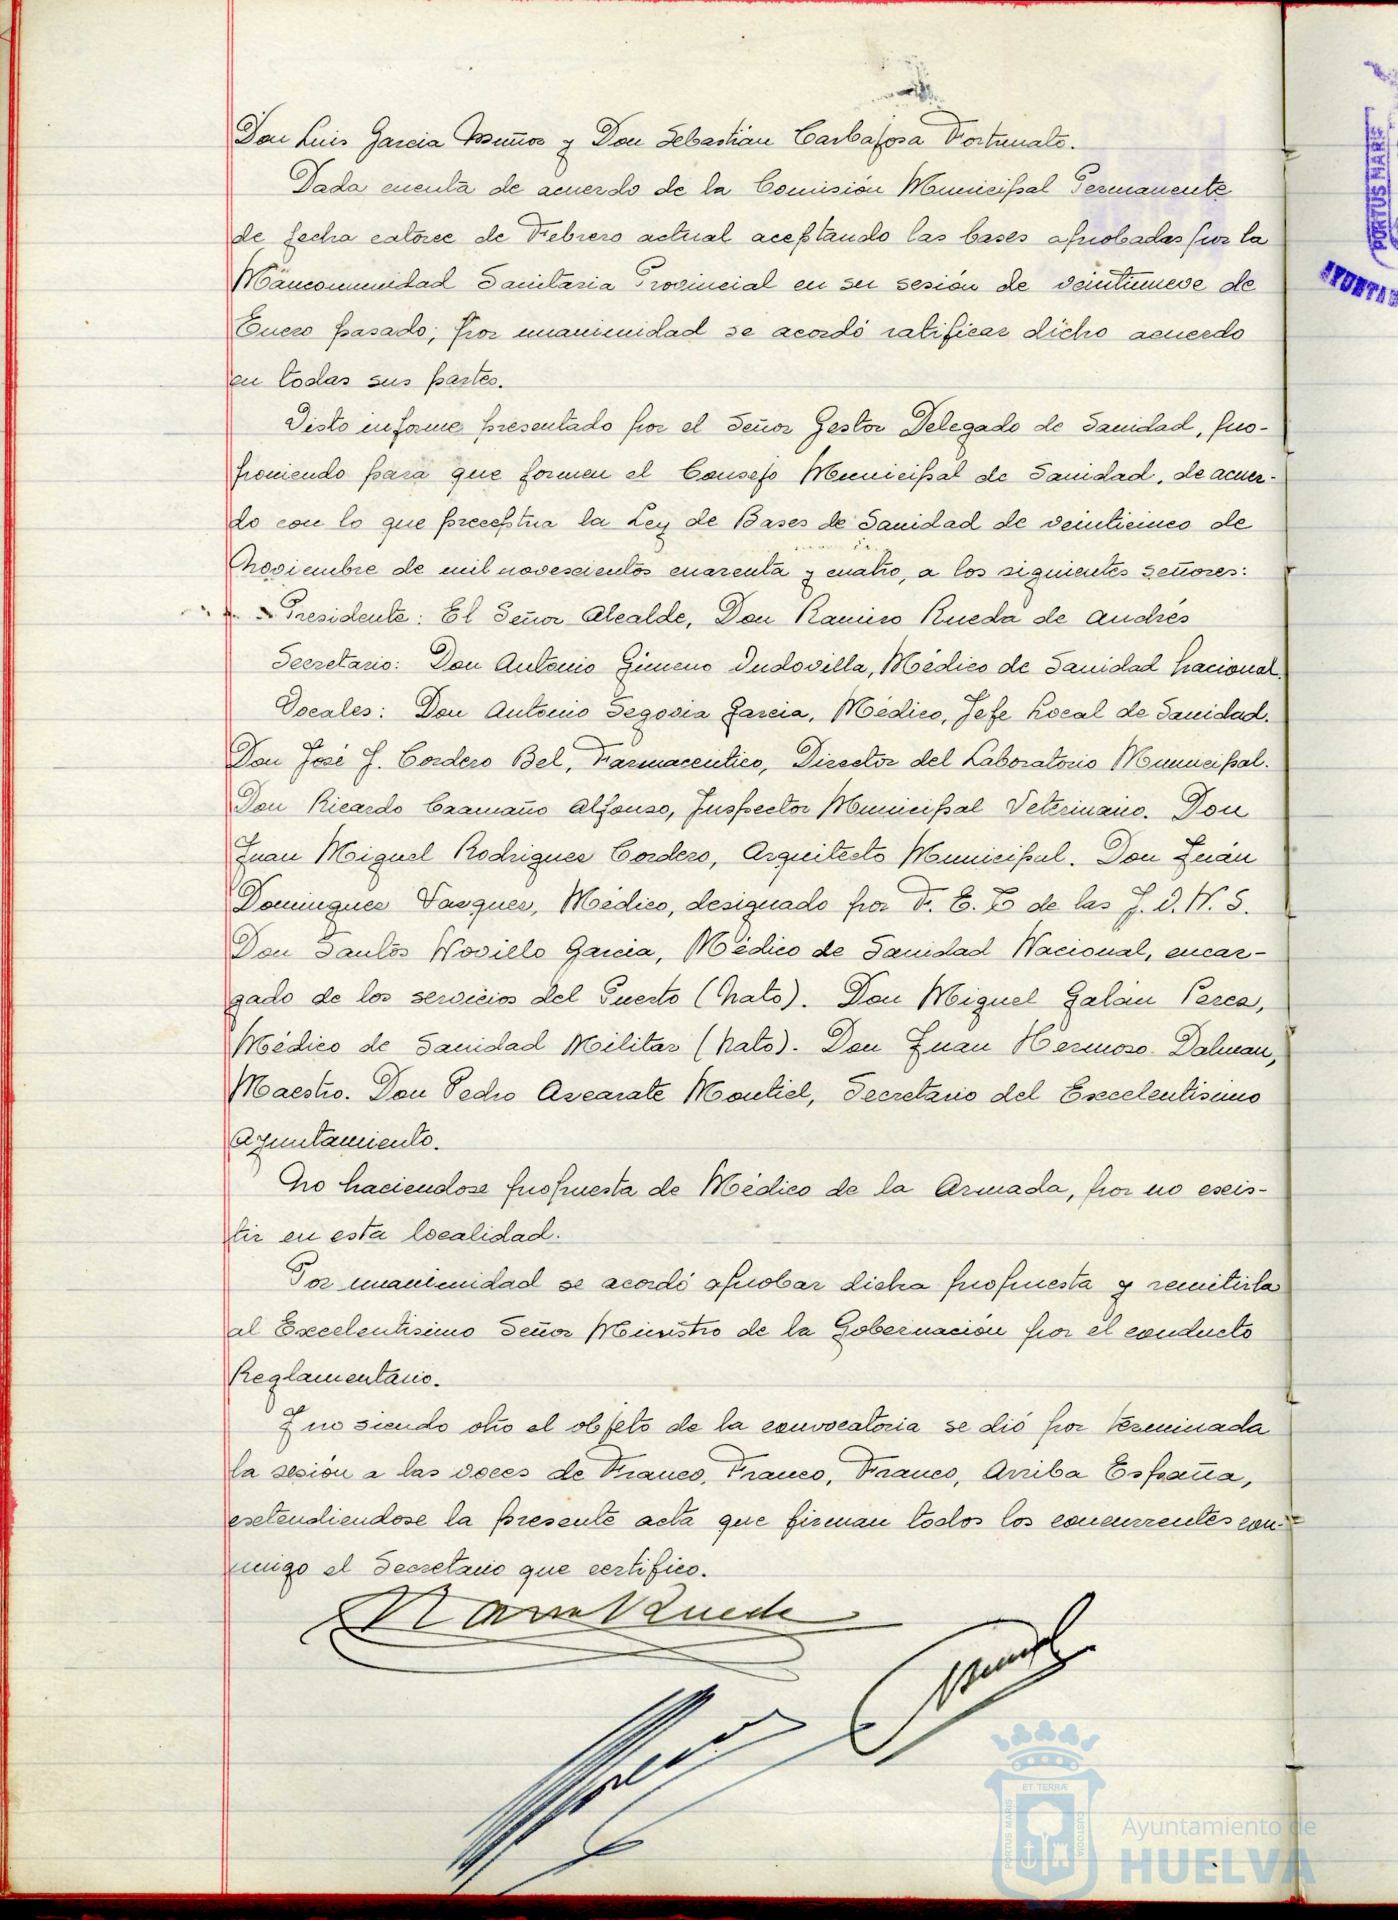 Don Luis Garcia Muñoz y Don Sebastián Carbajosa Fortunato.
Dada cuenta de acuerdo de la Comisión Municipal Permanente
de fecha catorce de Febrero actual aceptando las bases aprobadas por la
Mancomunidad Sanitaria Provincial en su sesión de veintinueve de
Enero pasado; por unanimidad se acordó ratificar dicho acuerdo
en todas sus partes.
Visto informe presentado por el Señor Gestor Delegado de Sanidad, pro-
poniendo para que formen el Consejo Municipal de Sanidad, de acuer-
do con lo que preceptua la Ley de Bases de Sanidad de veinticinco de
Noviembre de mil novescientos cuarenta y cuatro, a los siguientes señores:
Presidente: El Señor Alcalde, Don Ramiro Rueda de Andrés
Secretario: Don Antonio Gimeno Indovilla, Médico de Sanidad Nacional.
Vocales: Don Antonio Segovia Garcia, Médico, Jefe Local de Sanidad.
Don José J. Cordero Bel, Farmaceutico, Director del Laboratorio Municipal.
Don Ricardo Caamaño Alfonso, Inspector Municipal Veterinario. Don
Juan Miguel Rodriguez Cordero, Arquitecto Municipal. Don Juán
Dominguez Vazquez, Médico, designado por F. E. T de las J. O. N. S.
Don Santos Novillo Garcia, Médico de Sanidad Nacional, encar-
gado de los servicios del Puerto (Nato). Don Miguel Galán Perez,
Médico de Sanidad Militar (Nato). Don Juan Hermoso Dalmau,
Maestro. Don Pedro Azcarate Montiel, Secretario del Excelentisimo
Ayuntamiento.
No haciendose propuesta de Médico de la Armada, por no exis-
tir en esta localidad.
Por unanimidad se acordó aprobar dicha propuesta y remitirla
al Excelentisimo Señor Ministro de la Gobernación por el conducto
Reglamentario.
Y no siendo otro el objeto de la convocatoria se dió por terminada
la sesión a las voces de Franco, Franco, Franco, Arriba España,
extendiendose la presente acta que firman todos los concurrentes con-
migo el Secretario que certifico.
Ramiro Rueda
PORTUS MARIS
ET TERRÆ
CUSTODIA
PORTUS MARIS
Ayuntamiento de
HUELVA